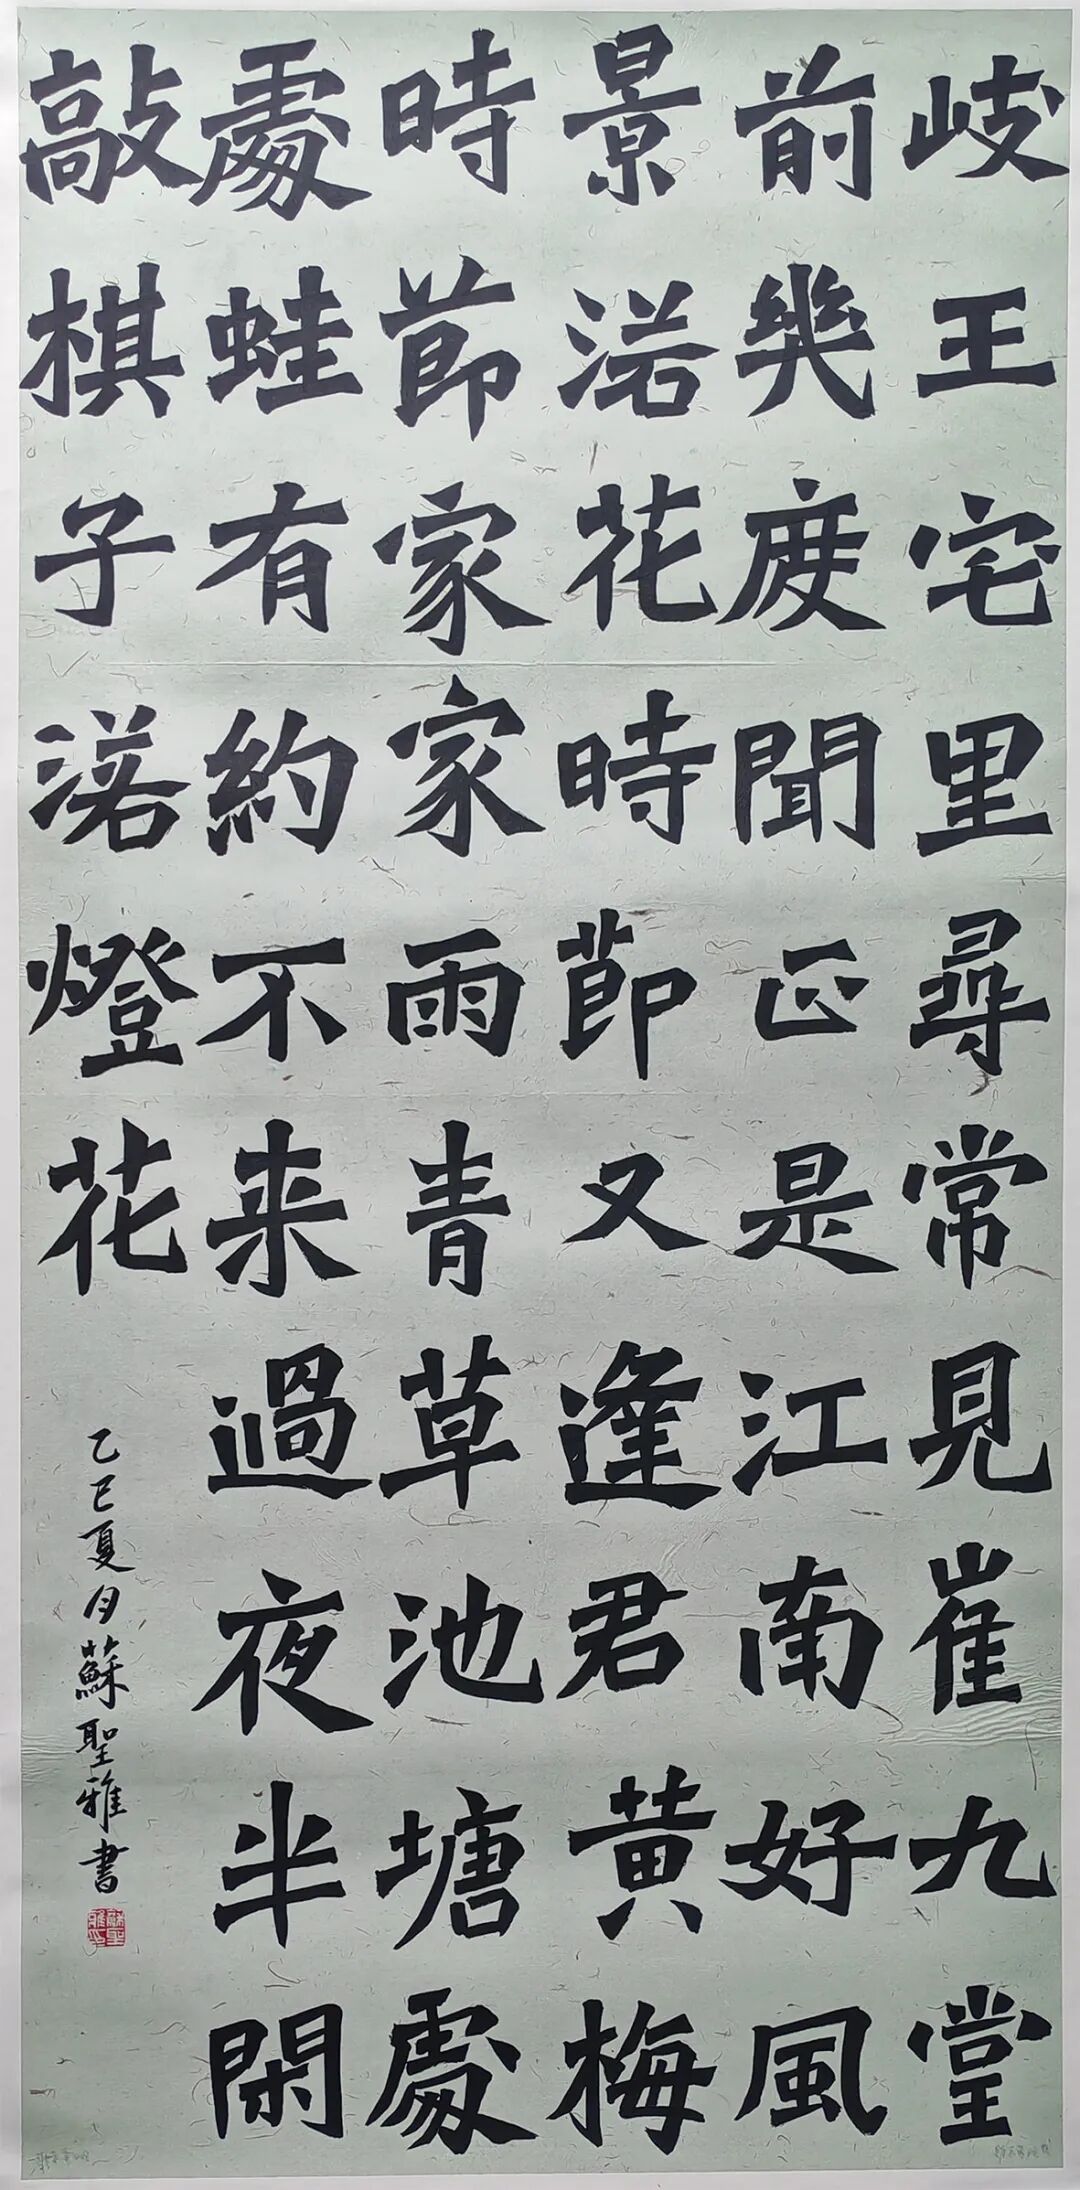 岐王宅里尋常見崔九堂
前幾度聞正是江南好風
景落花時節又逢君黄梅
時節家家雨青草池塘處
處蛙有約不来過夜半閑
敲棋子落燈花
乙巳夏月蘇聖雅書